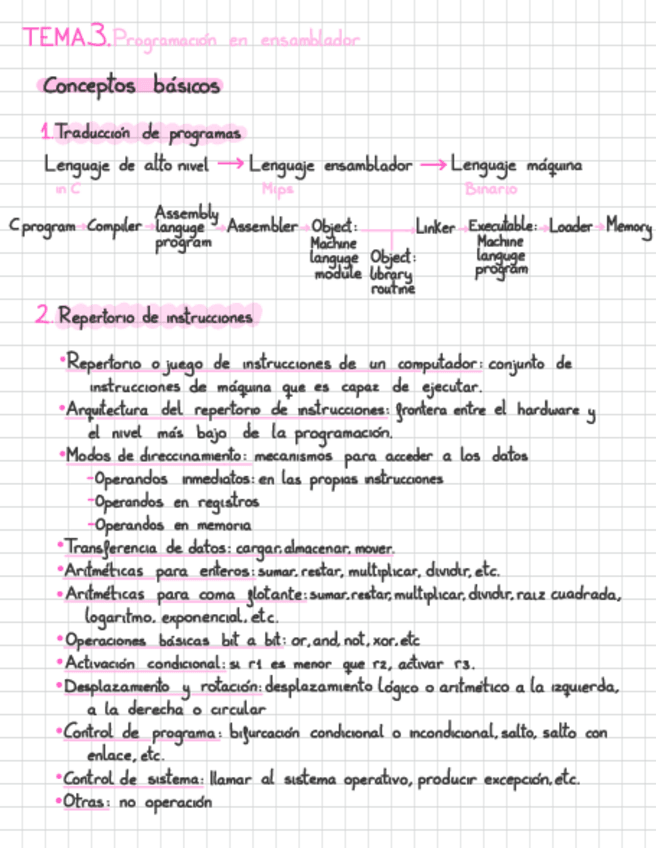 TEMA3. Programación en ensamblador
Conceptos básicos
1. Traducción de programas
Lenguaje de alto nivel → Lenguaje ensamblador → Lenguaje máquina
in C Mips Binario
C program → Compiler → Assembly languge program → Assembler → Object: Machine languge module Object: library routine Linker → Executable: Machine languge program → Loader → Memory
2. Repertorio de instrucciones
•Repertorio o juego de instrucciones de un computador: conjunto de
instrucciones de máquina que es capaz de ejecutar.
•Arquitectura del repertorio de instrucciones: frontera entre el hardware y
el nivel más bajo de la programación.
•Modos de direccinamiento: mecanismos para acceder a los datos
-Operandos inmediatos: en las propias instrucciones
-Operandos en registros
-Operandos en memoria
•Transferencia de datos: cargar, almacenar, mover.
•Aritméticas para enteros: sumar, restar, multiplicar, dividir, etc.
•Aritméticas para coma flotante: sumar, restar, multiplicar, dividir, raiz cuadrada,
logaritmo, exponencial, etc.
•Operaciones básicas bit a bit: or, and, not, xor, etc
•Activación condicional: si r1 es menor que r2, activar r3.
•Desplazamiento y rotación: desplazamiento lógico o aritmético a la izquierda,
a la derecha o circular
•Control de programa: bifurcación condicional o incondicional, salto, salto con
enlace, etc.
•Control de sistema: llamar al sistema operativo, producir excepción, etc.
•Otras: no operación